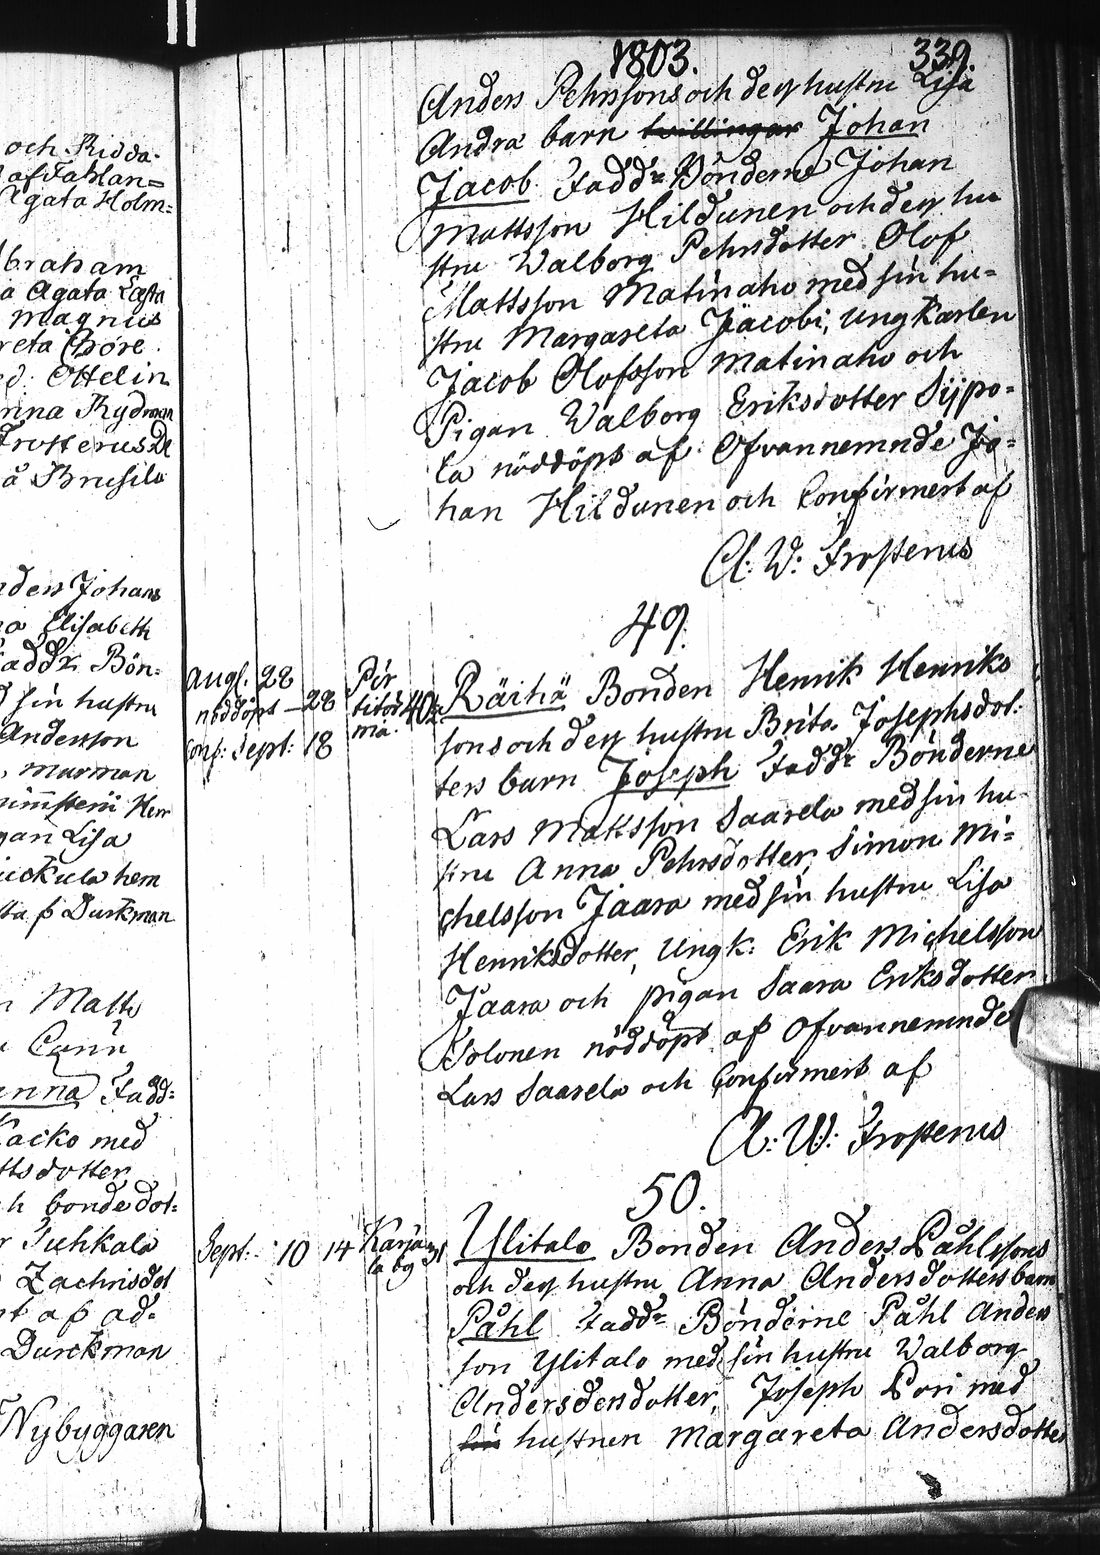 1803. 339.
Anders Pehrssons och dess hustru Lisa
Andra barn tvillingar Johan
Jacob Fadd:r Bönderne Johan
Mattsson Hildunen och dess hu
stru Walborg Pehrsdotter Olof
Mattsson Matinaho med sin hu=
stru Margareta Jacobi, Ungkarlen
Jacob Olofsson Matinaho och
Pigan Walborg Eriksdotter Sijpo=
la nöddöpt af Ofvannemnde Jo=
han Hildunen och Confirmert af
Cl: W: Frosterus
49.
Räihä Bonden Henrik Henriks
sons och dess hustru Brita Josephsdot:
ters barn Joseph Fadd:r Bönderne
Lars Mattsson Saarela med sin hu-
stru Anna Pehrsdotter, Simon Mi=
chelsson Jaara med sin hustru Lisa
Henriksdotter, Ungk: Erik Michelsson
Jaara och pigan Saara Eriksdotter
Tolonen nöddöpt af Ofvannemnde
Lars Saarela och Confirmert af
Cl: W: Frosterus
50.
Ylitalo Bonden Anders Påhlssons
och dess hustru Anna Andersdotters barn
Påhl Fadd:r Bönderne Påhl Anders
son Ylitalo med sin hustru Walborg
Andersdersdotter, Joseph Pori med
sin hustrun Margareta Andersdotter
Aug. 28
nöddöpt - 28
Conf: Sept: 18
40
Sept: 10 14
och Ridda-
af Fahlan=
Agata Holm=
Abraham
a Agata
Magnus
reta
Ottelin
Rydman
Frosterus
Johans
Elisabeth
Fadd:r Bön-
sin hustru
Andersson
Murman
gan Lisa
hem
Durkman
Matts
anna Fadd=
med
ttsdotter
h bondedot=
Tuhkala
Zachrisdot
ad-
Durckman
Nybyggaren